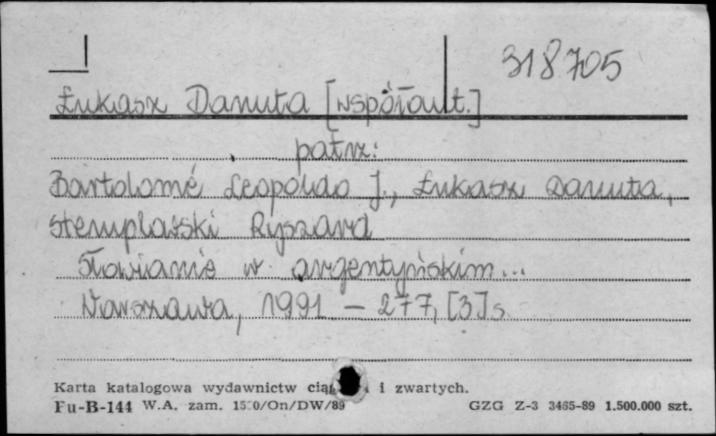 318705
Łukasz Danuta [współaut.]
patrz:
Bartolomé Leopoldo J., Łukasz Danuta,
Stemplowski Ryszard
Słowianie w argentyńskim...
Warszawa, 1991 – 277, [3] s.
Karta katalogowa wydawnictw i zwartych.
Fu-B-144 W.A. zam. GZG Z-3 3465-89 1.500.000 szt.